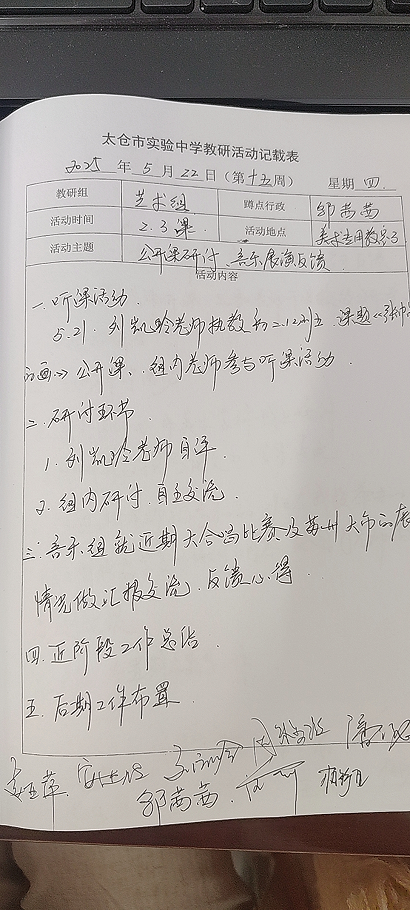 太仓市实验中学教研活动记载表
2025 年 5 月 22 日（第十五周） 星期 四
教研组 艺术组 蹲点行政 邹茜茜
活动时间 2.3课 活动地点 美术专用教室3
活动主题 公开课研讨、音乐展演反馈
活动内容
一. 听课活动
5.21. 刘凯玲老师执教初二.12班 课题《张
的画》公开课、组内老师参与听课活动
二. 研讨环节
1. 刘凯玲老师自评
2. 组内研讨 自主交流
三. 音乐组就近期大合唱比赛及苏州大市的展
情况做汇报交流、反馈心得
四. 近阶段工作总结
五. 后期工作布置
邹茜茜